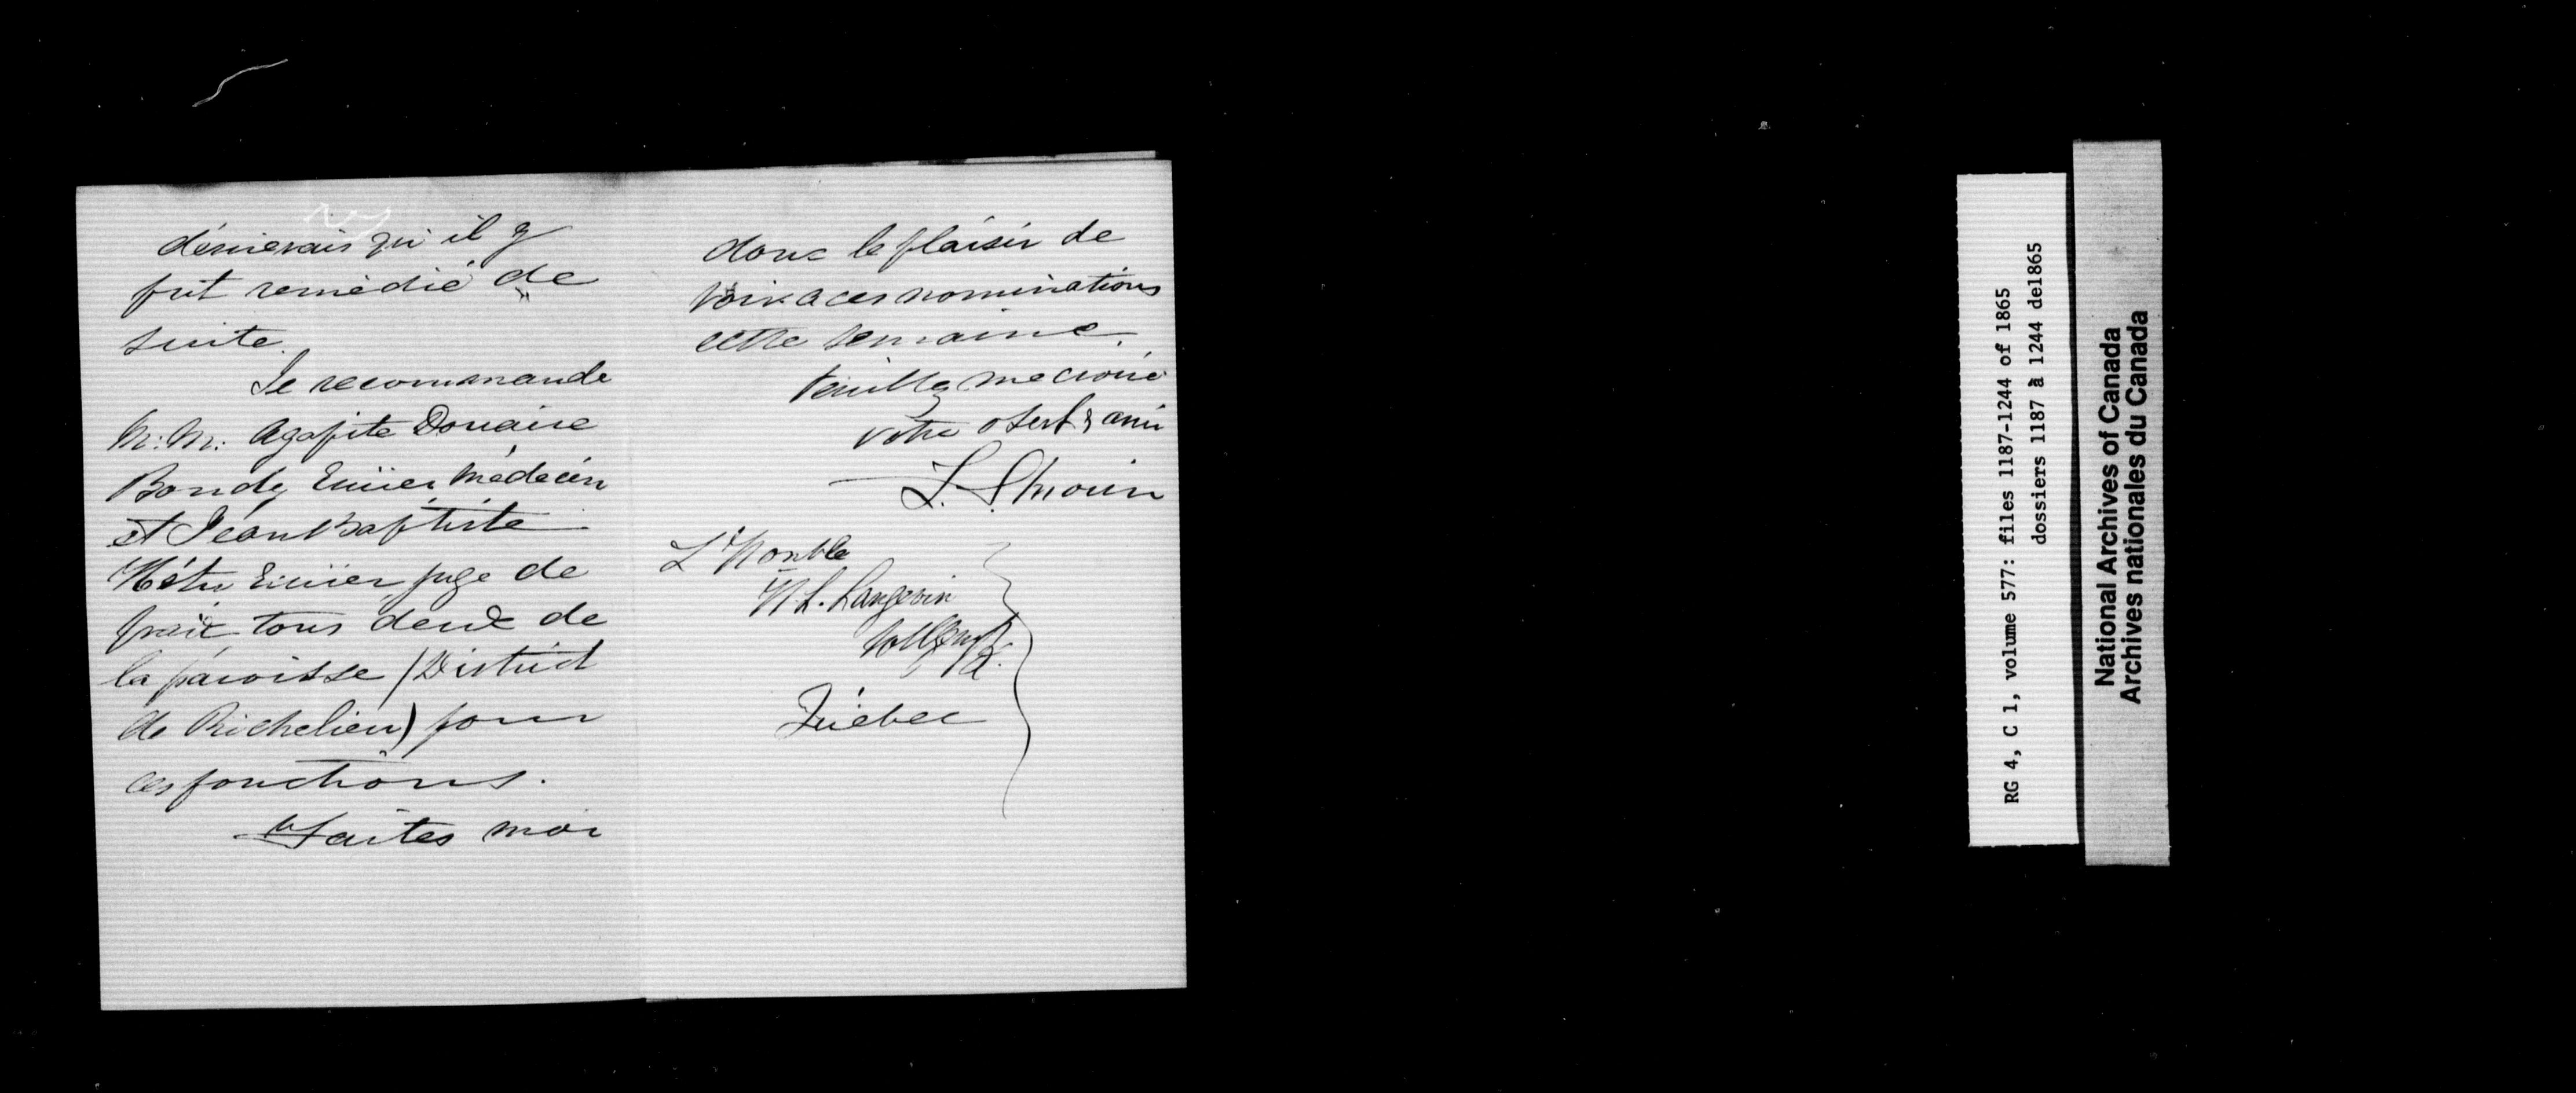 désirerais qu'il y
fut remédié de
suite.
Je recommande
M:M: Agapite Douaire
Bondy Ecuier Médecin
et Jean Baptiste
Hétu Ecuier juge de
paix tous deux de
la paroisse (District
de Richelieu) pour
ces fonctions.
Faites moi
donc le plaisir de
voir a ces nominations
cette semaine.
Veuillez me croire
votre o serv & ami
L'Honble
H. L. Langevin
Québec
RG 4, C 1, volume 577: files 1187-1244 of 1865
dossiers 1187 à 1244 de1865
National Archives of Canada
Archives nationales du Canada